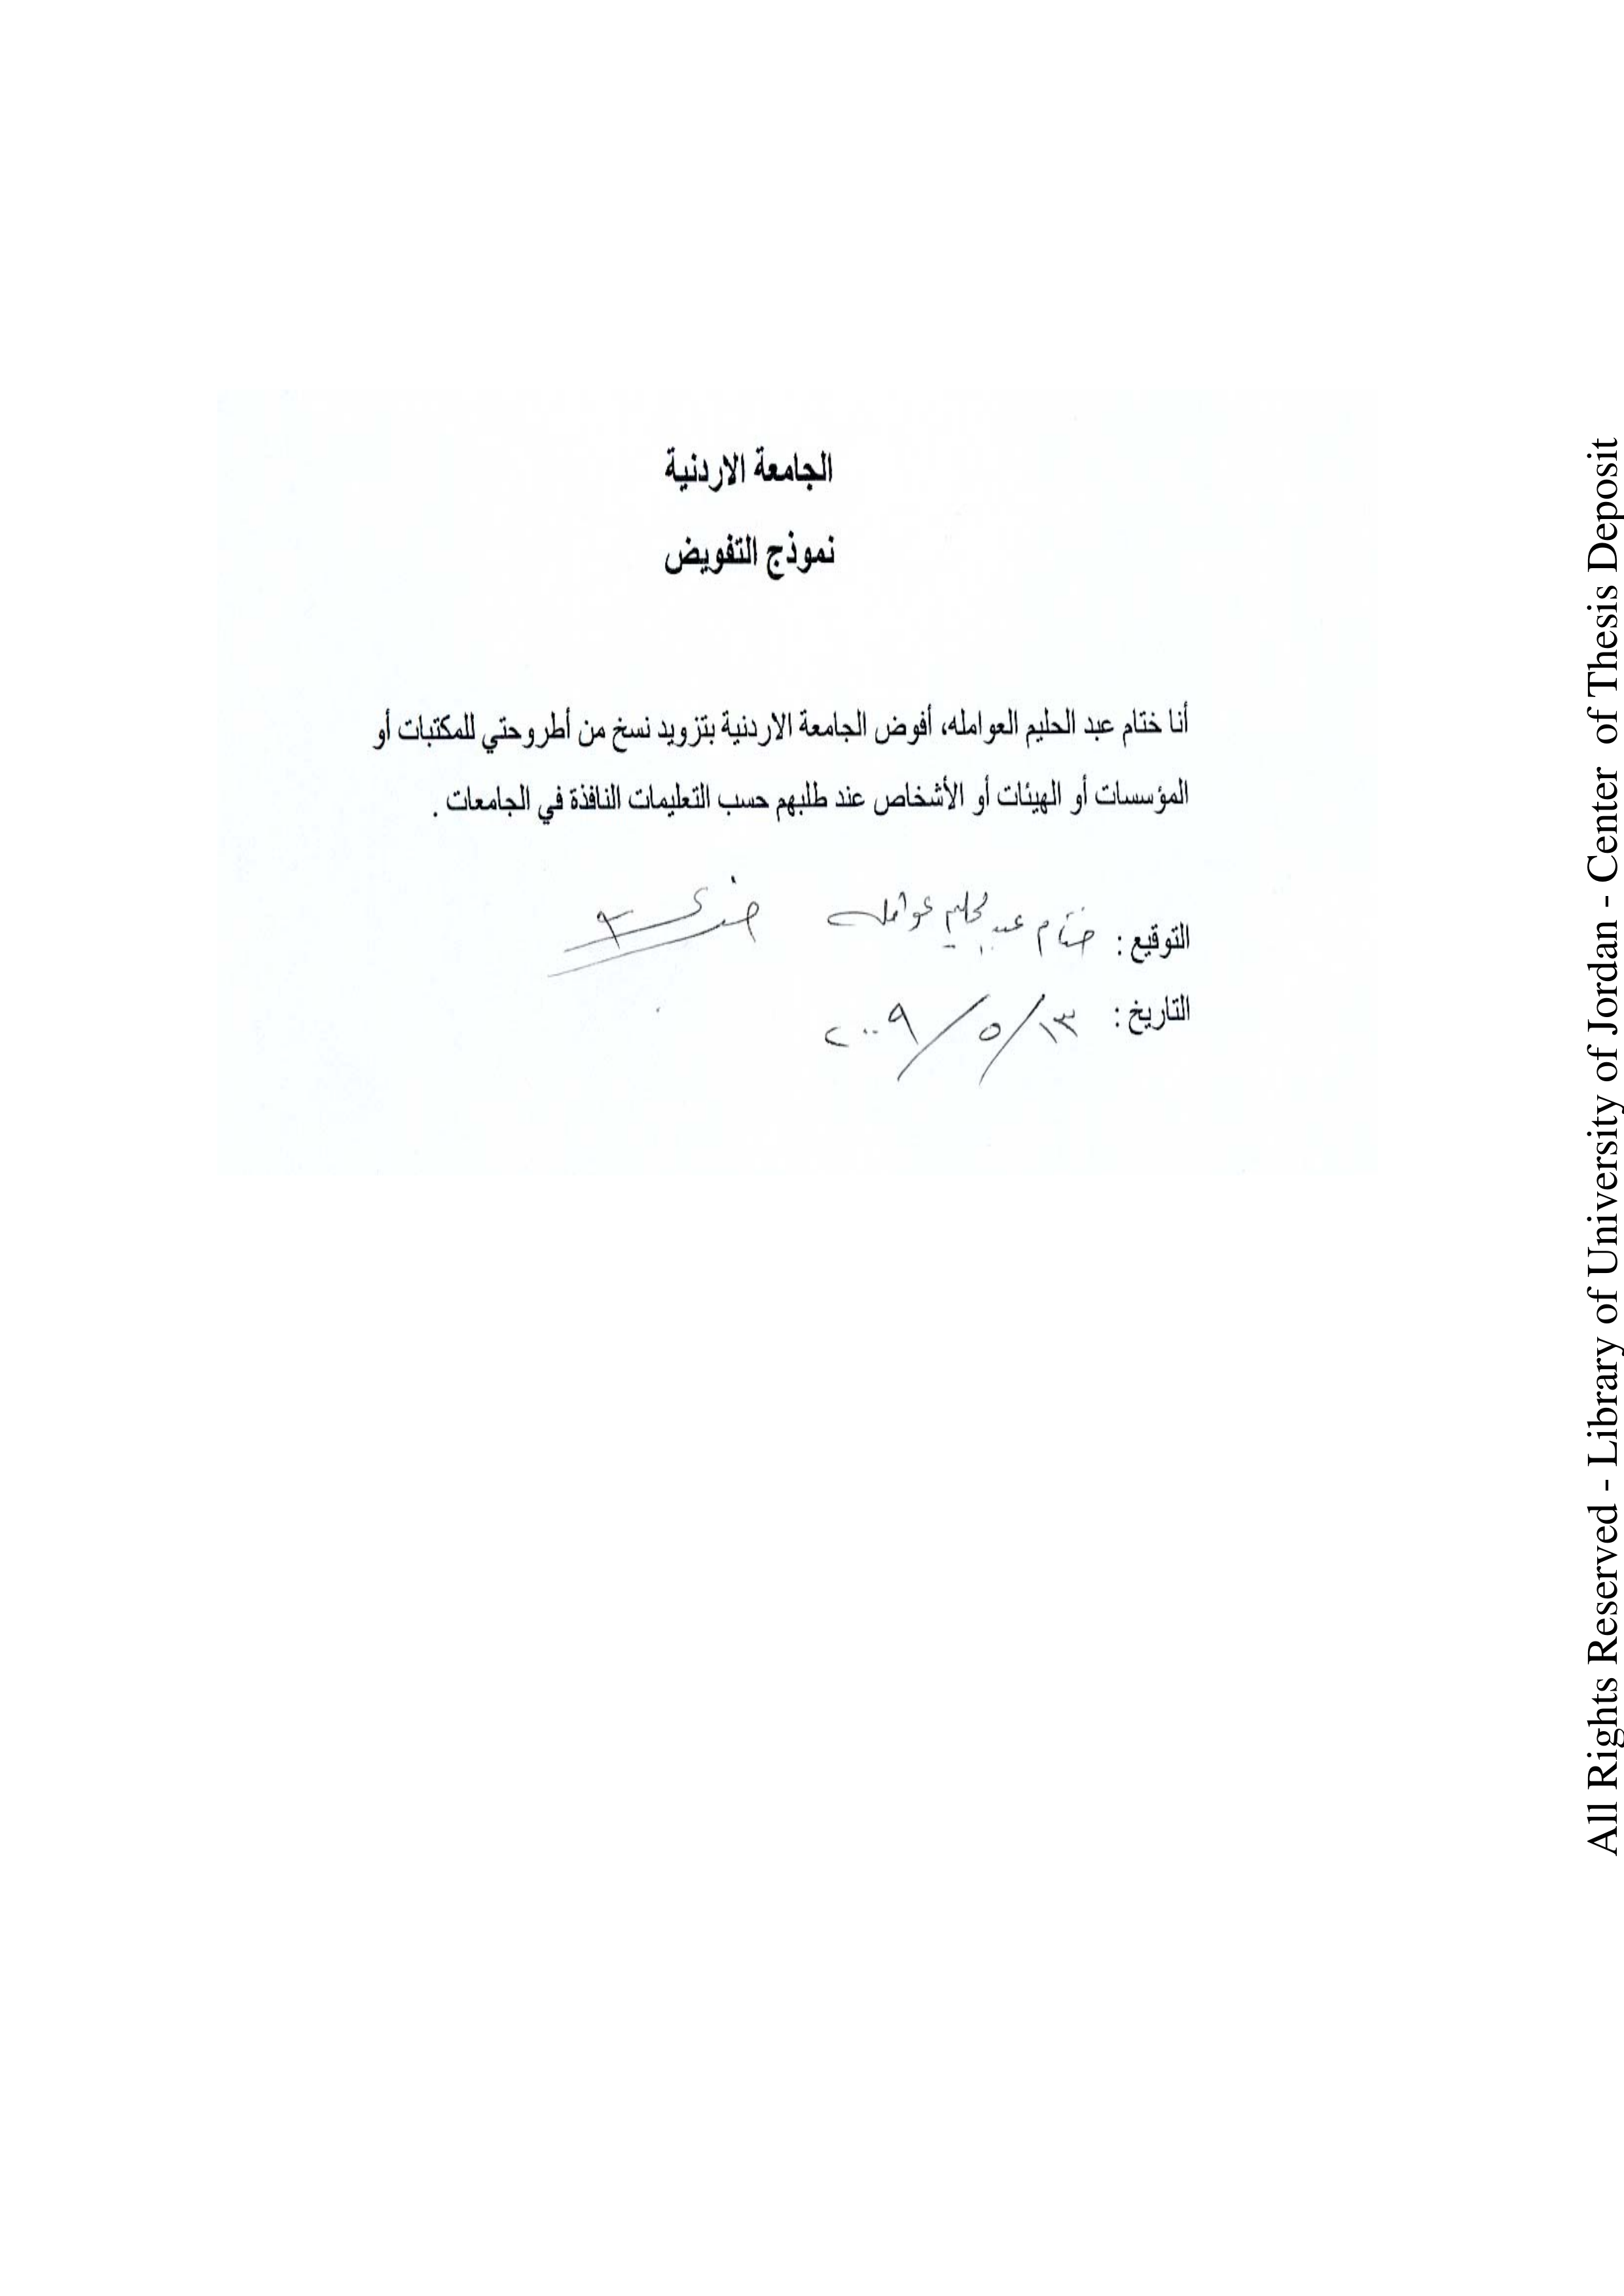 الجامعة الاردنية
نموذج التفويض
أنا ختام عبد الحليم العوامله، أفوض الجامعة الاردنية بتزويد نسخ من أطروحتي للمكتبات أو
المؤسسات أو الهيئات أو الأشخاص عند طلبهم حسب التعليمات النافذة في الجامعات .
التوقيع : ختام عبد الحليم عوامله
التاريخ : ١٣/٥/٢٠٠٩
All Rights Reserved - Library of University of Jordan - Center of Thesis Deposit